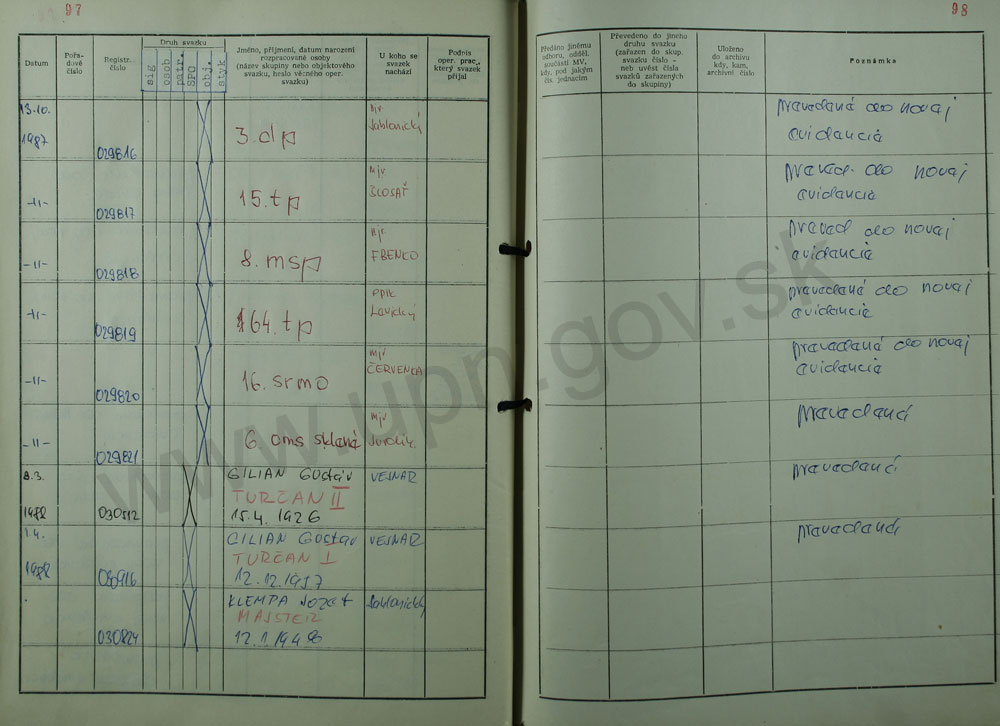 97
Datum
Pořa-
dové
číslo
Registr.
číslo
Druh svazku
sig
osob
patr.
SPO
obj.
styk
Jméno, příjmení, datum narození
rozpracované osoby
(název skupiny nebo objektového
svazku, heslo věcného oper.
svazku)
U koho se
svazek
nachází
Podpis
oper. prac.,
který svazek
přijal
13.10.
1987
029816
3. dp
mjr
Jablonický
-II-
029817
15. tp
mjr
ŠLOSAŤ
-II-
029818
8. msp
mjr
-II-
029819
64. tp
pplk
-II-
029820
16. srmo
mjr
ČERVENKA
-II-
029821
6. oms sklené
mjr
8.3.
1988
030512
GILIAN Gustáv
TURČAN II
15.4. 1926
VESNAR
1.4.
1988
GILIAN Gustav
TURČAN I
12.12.1957
VESNAR
030824
KLEMPA Jozef
MAJSTER
12.1.1948
Jablonický
98
Předáno jinému
odboru, odděl.
součásti MV,
kdy, pod jakým
čís. jednacím
Převedeno do jiného
druhu svazku
(zařazen do skup.
svazku číslo -
neb uvést čísla
svazků zařazených
do skupiny)
Uloženo
do archivu
kdy, kam,
archivní číslo
Poznámka
prevedené do novej
evidencie
preved. do novej
evidencie
preved do novej
evidencie
prevedené do novej
evidencie
prevedené do novej
evidencie
prevedené
prevedené
prevedené
www.upn.gov.sk